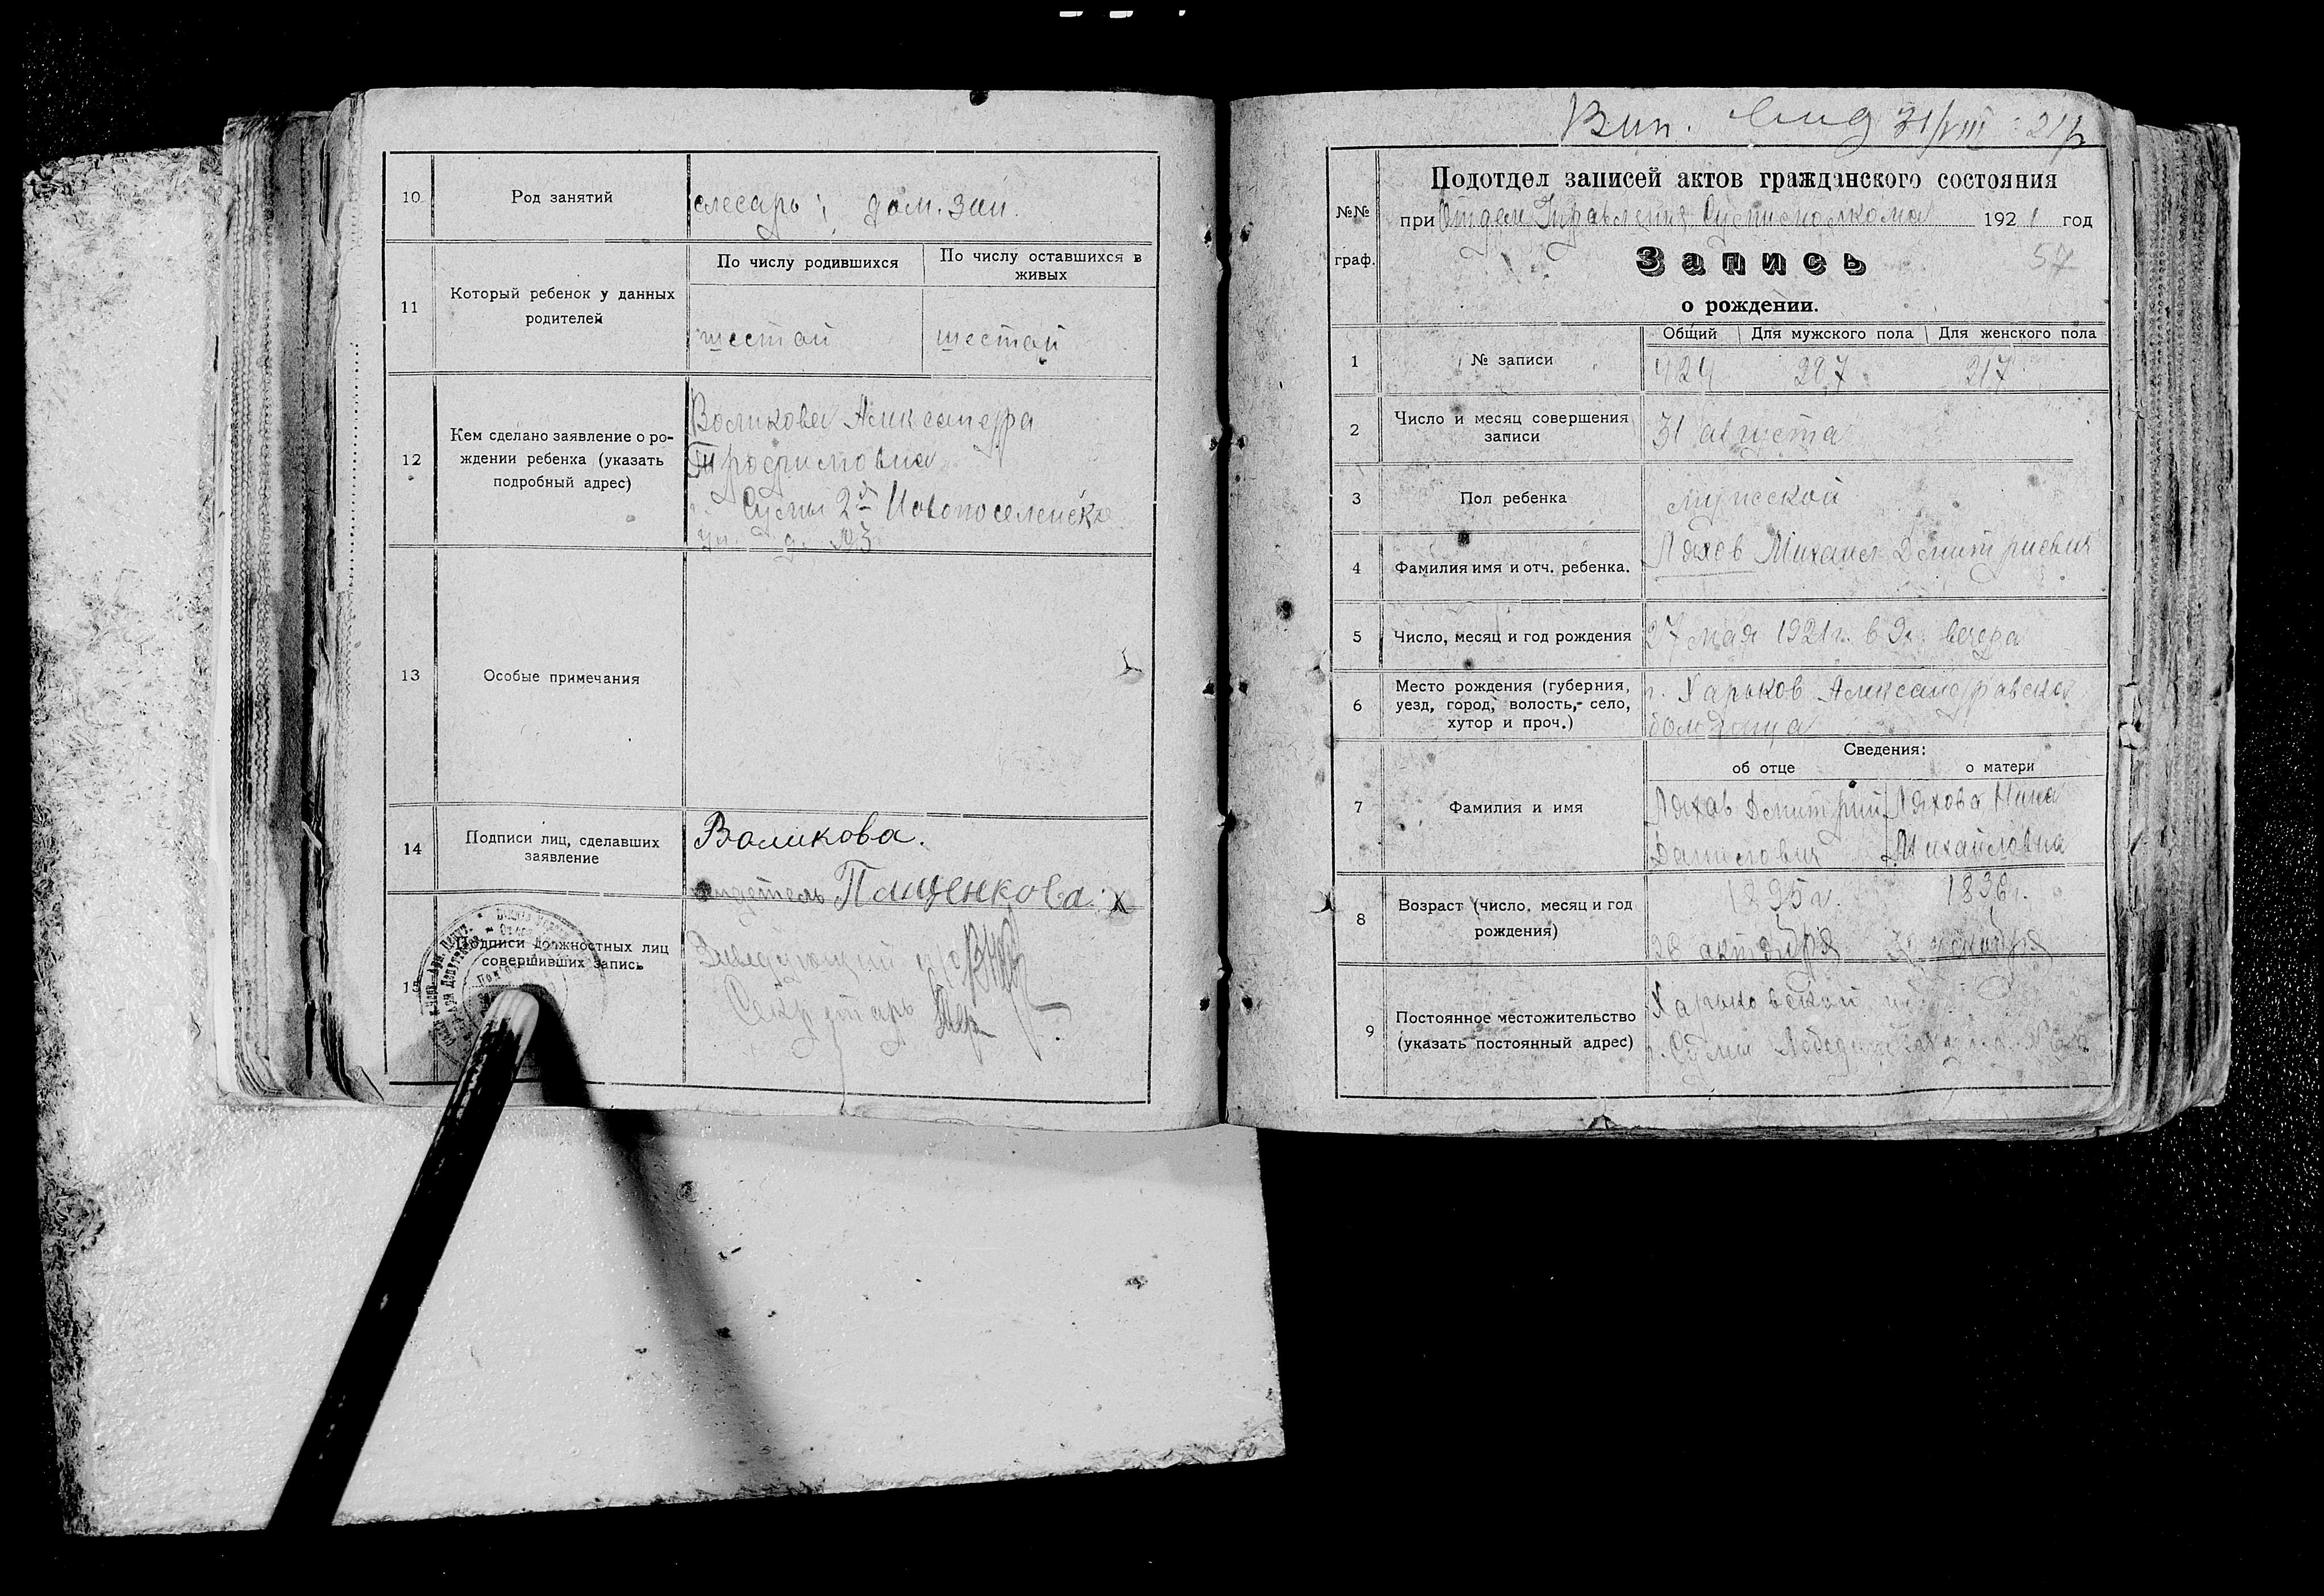 10
Род занятий
слесарь; дом. зан.
11
Который ребенок у данных
родителей
По числу родившихся
По числу оставшихся в
живых
шестой
шестой
12
Кем сделано заявление о ро-
ждении ребенка (указать
подробный адрес)
Воликова Александра
Трофимовна
г. Сумы 2я Новопоселенск
ул. д. №3
13
Особые примечания
14
Подписи лиц, сделавших
заявление
Воликова.
свидетель Пащенкова.
15
Подписи должностных лиц
совершивших запись
Заведующий
Секретарь
Вып. 31/VIII 21 г
№№
граф.
Подотдел записей актов гражданского состояния
при Отделе Управления 1921 год
Запись
57
о рождении.
1
№ записи
Общий
Для мужского пола
Для женского пола
424
217
2
Число и месяц совершения
записи
31 августа
3
Пол ребенка
мужской
4
Фамилия имя и отч. ребенка.
Ляхов Михаил Дмитриевич
5
Число, месяц и год рождения
27 мая 1921 г. в 9 ч. вечера
6
Место рождения (губерния,
уезд, город, волость, село,
хутор и проч.)
г. Харьков Александравская
больница
Сведения:
об отце
о матери
7
Фамилия и имя
Ляхов Дмитрий
Данилович
Ляхова Нина
Михайловна
8
Возраст (число, месяц и год
рождения)
1895 г.
26 октября
189 г.
9
Постоянное местожительство
(указать постоянный адрес)
Харьковской
г. Сумы